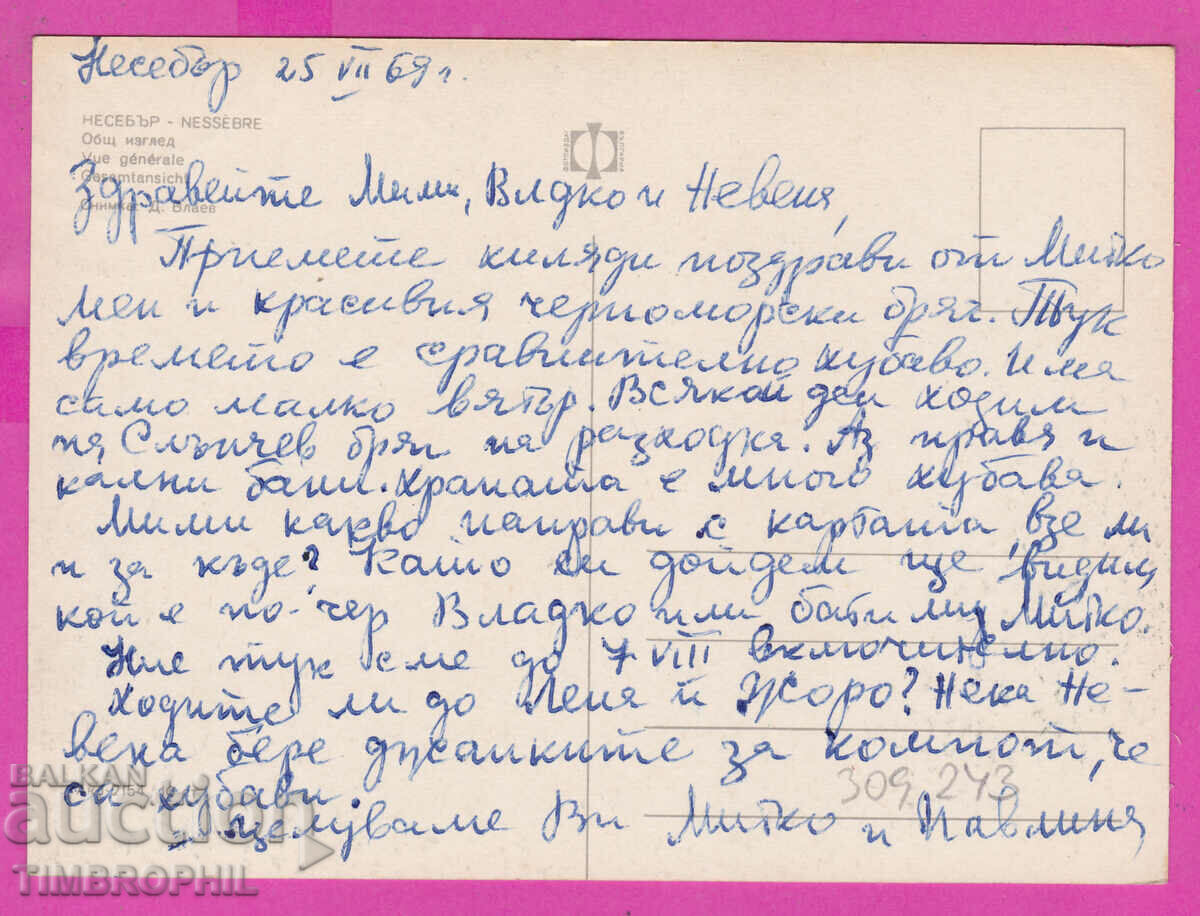 Несебър 25 VII 69 г.
НЕСЕБЪР - NESSÈBRE
Общ изглед
Vue générale
Gesamtansicht
Снимка: Д. Влаев
Здравейте Мими, Владко и Невена,
Приемете хиляди поздрави от Митко
мен и красивия черноморски бряг. Тук
времето е сравнително хубаво. Има
само малко вятър. Всякой ден ходим
на Слънчев бряг на разходка. Аз правя и
кални бани. Храната е много хубава.
Мими какво направи с картата, взе ли
и за къде? Като си дойдем ще видим
кой е по-чер Владко или бати му Митко.
Ние тук сме до 7 VIII включително.
Ходите ли до Леля и Жоро? Нека Не-
вена бере джанките за компот, че
са хубави.
Целуваме Ви Митко и Павлина
309 243
BALKAN
auction
TIMBROPHIL